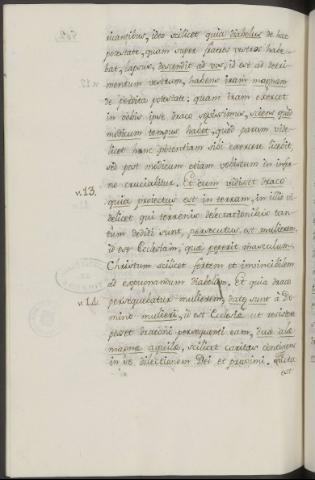 iuantibus, ideo scilicet quia diabolus de hac
potestate, quam super fratres vestros habe-
bat, lapsus, descendit ad vos, id est ad detri-
mentum vestrum, habens iram magnam
de perdita potestate: quam iram exercet
in vobis ipse draco sepissimus, sciens quod
modicum tempus habet, quod parum vide-
licet hanc potentiam sibi exercere licebit,
sed post modicum etiam vobiscum in infer-
no cruciabitur. Et cum vidisset draco
v. 13.
quia proiectus est in terram, in illis vi-
delicet qui terrenis delectationibus tan-
tum dediti sunt, persecutus est mulierem,
id est Ecclesiam, quæ peperit masculum
Christum scilicet fortem et invincibilem
ad expugnandum diabolum. Et quia draco
v. 14.
persequebatur mulierem, datæ sunt a Do-
mino mulieri, id est Ecclesiæ ut resistere
posset draconi persequenti eam, duæ alæ
magnæ aquilæ, scilicet caritas consistens
in dilectionem Dei et proximi.
est